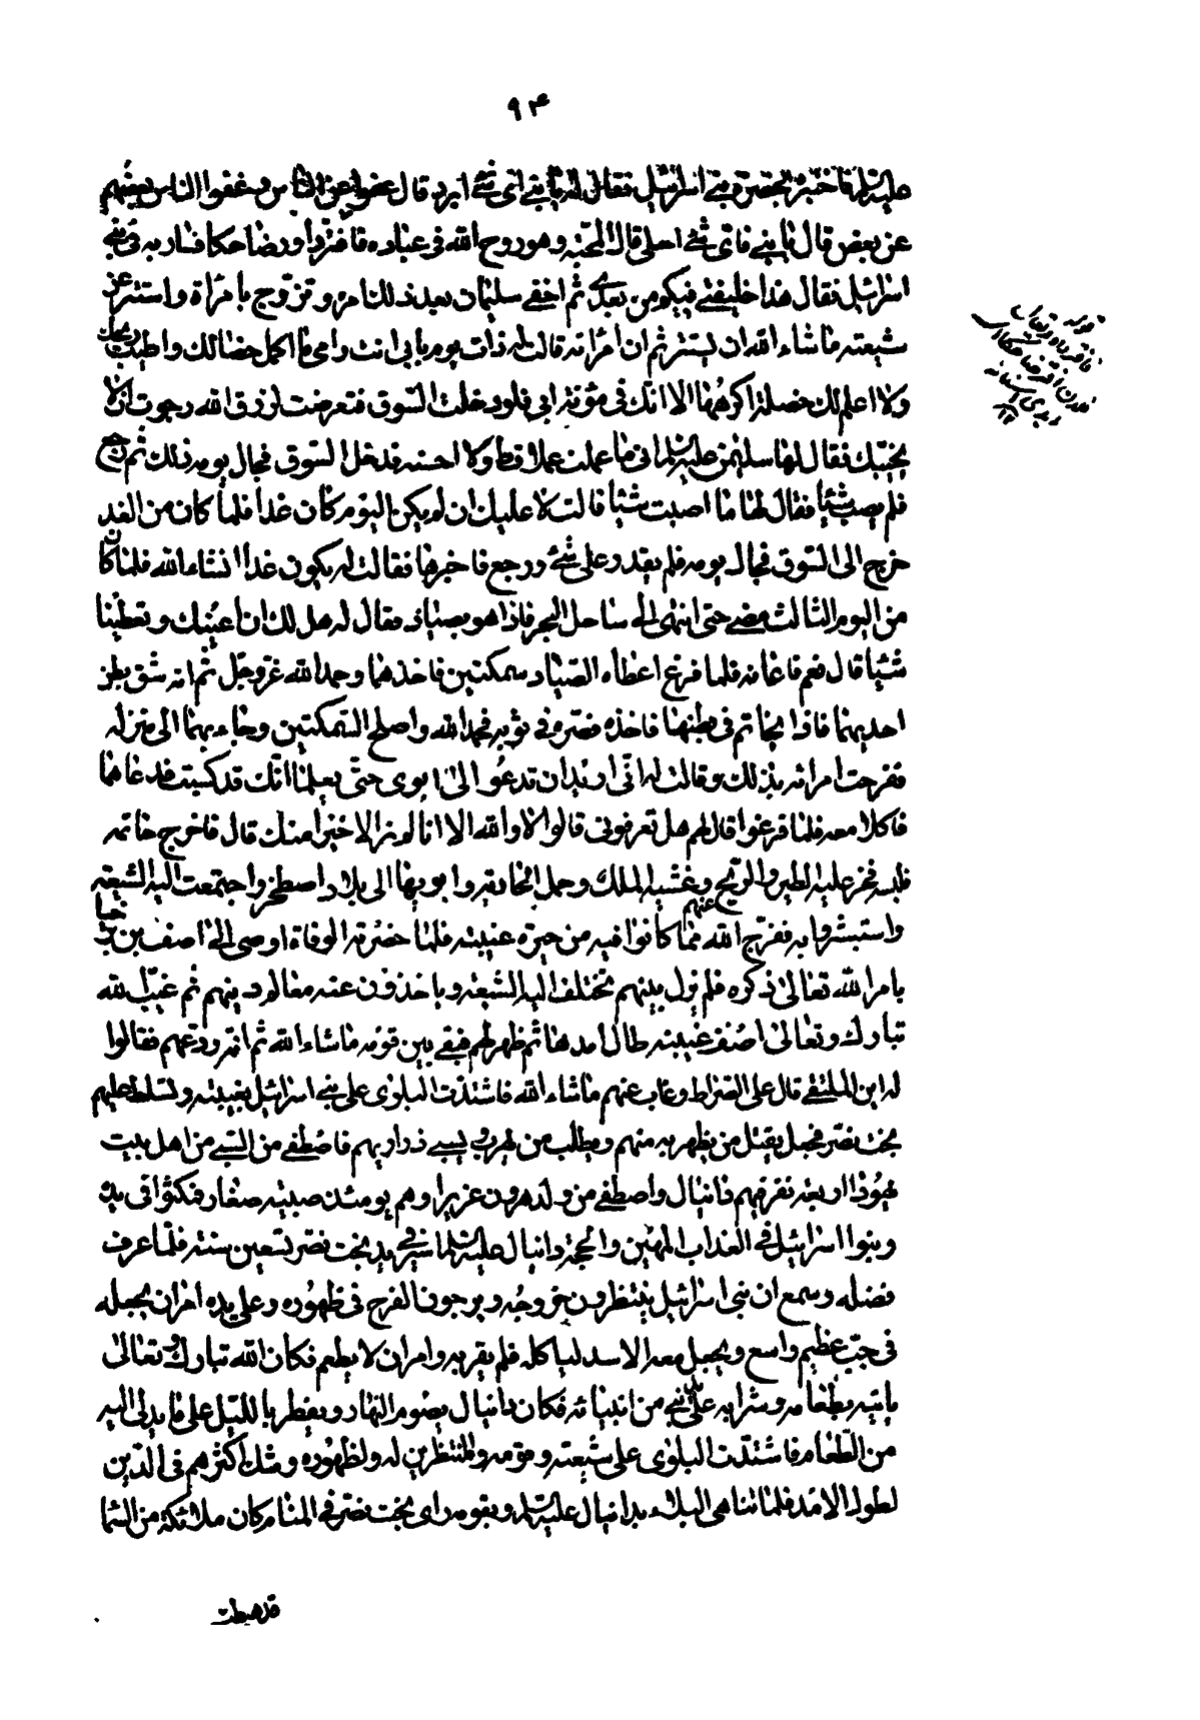 ٩٤
عليه السلم فاخبره بحضرة بني اسرائيل فقال له يا بني اي شئ ابرد قال عفو الله عن الناس وعفوا الناس بعضهم
عن بعض قال يا بني فاي شئ احلى قال المحبة وهو روح الله في عباده فافتر داود ضاحكا فسار به في بني
اسرائيل فقال هذا خليفتي فيكم من بعدي ثم اخفى سليمان بعد ذلك امره وتزوج بامراة واستتر عن
شيعته ما شاء الله ان يستتر ثم ان امراته قالت له ذات يوم بابي انت وامي ما اكمل خصالك واطيب ريحك
ولا اعلم لك خصلة اكرهها الا انك في مؤنة ابي فلو دخلت السوق فتعرضت لرزق الله رجوت ان لا
يخيبك فقال لها سليمن عليه السلم اني ما عملت عملا قط ولا احسنه فدخل السوق فجال يومه ذلك ثم رجع
فلم يصب شيئا فقال لها ما اصبت شيئا قالت لا عليك ان لم يكن اليوم كان غدا فلما كان من الغد
خرج الى السوق فجال يومه فلم يقدر على شئ ورجع فاخبرها فقالت له يكون غدا انشاء الله فلما كان
من اليوم الثالث مضى حتى انتهى الى ساحل البحر فاذا هو بصياد فقال له هل لك ان اعينك وتعطينا
شيئا قال نعم فاعانه فلما فرغ اعطاه الصياد سمكتين فاخذهما وحمد الله عز وجل ثم انه شق بطن
احديهما فاذا بخاتم في بطنها فاخذه فصره في ثوبه فحمد الله واصلح السمكتين وجاء بهما الى منزله
ففرحت امراته بذلك وقالت له اني اريد ان تدعوا الى ابوي حتى يعلما انك قد كسبت فدعاهما
فاكلا معه فلما فرغوا قال لهم هل تعرفوني قالوا لا والله الا انا لم نر الا خيرا منك قال فاخرج خاتمه
فلبسه فخر عليه الطير والريح وغشيه الملك وحمل الجارية وابويها الى بلاد اصطخر واجتمعت اليه الشيعة
واستبشروا به ففرج الله عنهم مما كانوا فيه من حيرة غيبته فلما حضرته الوفاة اوصى الى اصف بن برخيا
بامر الله تعالى ذكره فلم يزل بينهم تختلف اليه الشيعة وياخذون عنه معالم دينهم ثم غيب الله
تبارك وتعالى اصف غيبة طال امدها ثم ظهر لهم فبقي بين قومه ما شاء الله ثم انه ودعهم فقالوا
له اين الملتقى قال على الصراط وغاب عنهم ما شاء الله فاشتدت البلوى على بني اسرائيل بغيبته وتسلط عليهم
بخت نصر فجعل يقتل من يظهر به منهم ويطلب من يهرب ويسبي ذراريهم فاصطفى من السبي من اهل بيت
يهوذا اربعة نفر فيهم دانيال واصطفى من ولد هرون عزيرا وهم يومئذ صبية صغار فمكثوا في يده
وبنوا اسرائيل في العذاب المهين والحجة دانيال عليه السلم اسير في يد بخت نصر تسعين سنة فلما عرف
فضله وسمع ان بني اسرائيل ينتظرون خروجه ويرجون الفرج في ظهوره وعلى يده امر ان يجعله
في جب عظيم واسع ويجعل معه الاسد لياكله فلم يقربه وامر ان لا يطعم فكان الله تبارك وتعالى
ياتيه بطعامه وشرابه على يد نبي من انبيائه فكان دانيال يصوم النهار ويفطر بالليل على ما يدلى اليه
من الطعام فاشتدت البلوى على شيعته وقومه والمنتظرين له ولظهوره وشك اكثرهم في الدين
لطول الامد فلما تناهى البلاء بدانيال عليه السلم وبقومه راى بخت نصر في المنام كان ملائكة من السما
قد هبطت